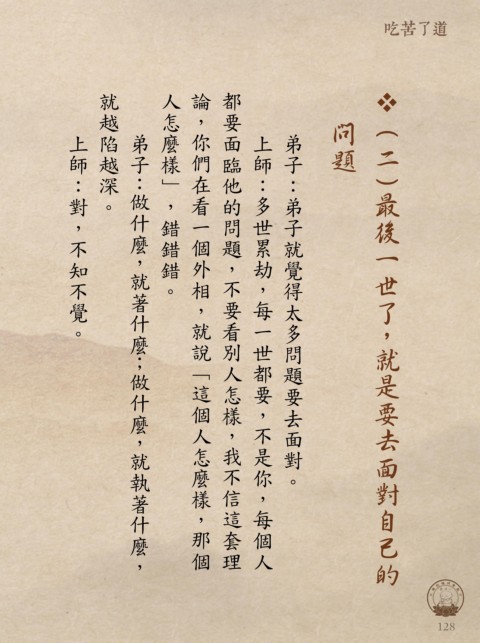 吃苦了道
❖（二）最後一世了，就是要去面對自己的
問題
弟子：弟子就覺得太多問題要去面對。
上師：多世累劫，每一世都要，不是你，每個人
都要面臨他的問題，不要看別人怎樣，我不信這套理
論，你們在看一個外相，就說「這個人怎麼樣，那個
人怎麼樣」，錯錯錯。
弟子：做什麼，就著什麼；做什麼，就執著什麼，
就越陷越深。
上師：對，不知不覺。
128